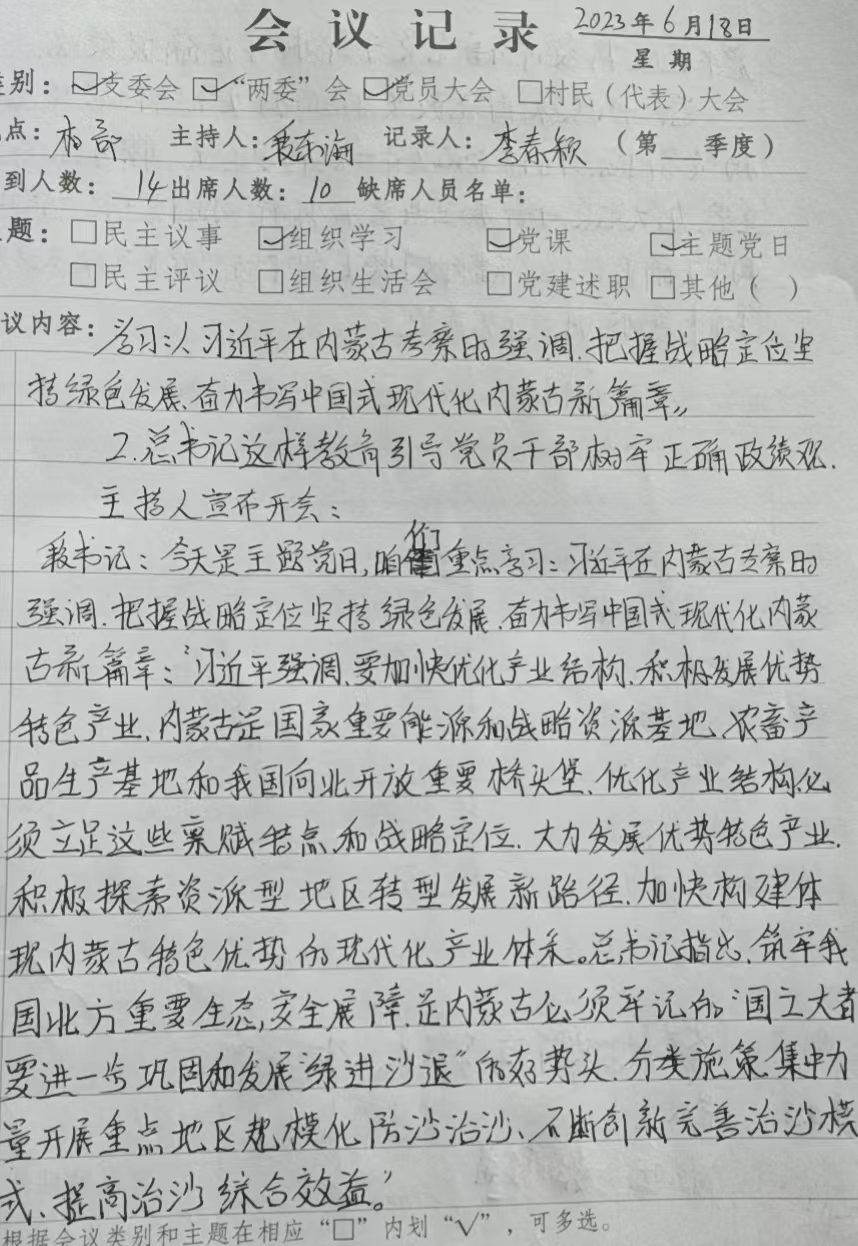 会议记录 2023年6月18日
星期
类别：☑支委会 ☑“两委”会 ☑党员大会 □村民（代表）大会
点：村部 主持人：东海 记录人：李春颖 （第 季度）
到人数：14 出席人数：10 缺席人员名单：
题：□民主议事 ☑组织学习 ☑党课 ☑主题党日
□民主评议 □组织生活会 □党建述职 □其他（ ）
议内容：学习：1、习近平在内蒙古考察时强调，把握战略定位坚
持绿色发展，奋力书写中国式现代化内蒙古新篇章”
2.总书记这样教育引导党员干部树牢正确政绩观.
主持人宣布开会：
书记：今天是主题党日，咱们重点学习：习近平在内蒙古考察时
强调，把握战略定位坚持绿色发展，奋力书写中国式现代化内蒙
古新篇章：“习近平强调，要加快优化产业结构，积极发展优势
特色产业，内蒙古是国家重要能源和战略资源基地、农畜产
品生产基地和我国向北开放重要桥头堡，优化产业结构必
须立足这些禀赋特点和战略定位，大力发展优势特色产业，
积极探索资源型地区转型发展新路径，加快构建体
现内蒙古特色优势的现代化产业体系。总书记指出，筑牢我
国北方重要生态，安全屏障，是内蒙古必须牢记的“国之大者
要进一步巩固和发展“绿进沙退”的好势头，分类施策，集中力
量开展重点地区规模化防沙治沙、不断创新完善治沙模
式、提高治沙综合效益。”
根据会议类别和主题在相应“□”内划“√”，可多选。